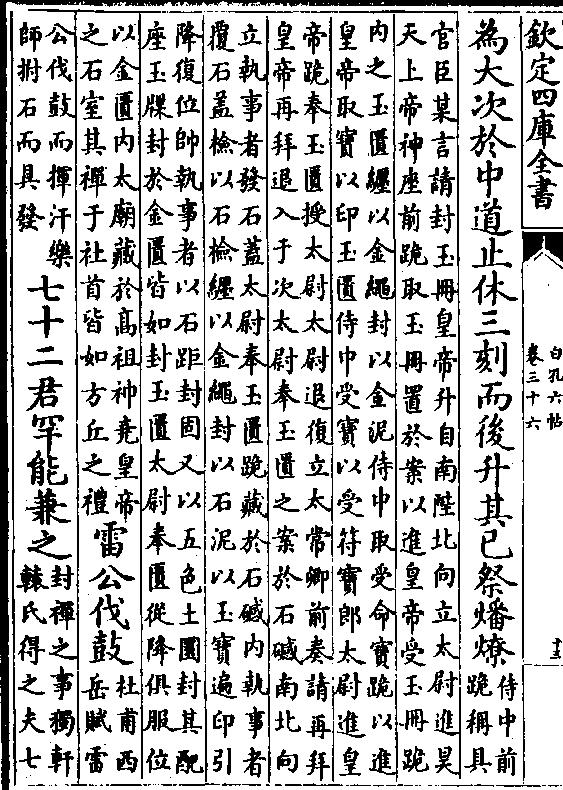 欽定四庫全書
白孔六帖
卷三十六
十五
為大次於中道止休三刻而後升其已祭燔燎
侍中前
跪稱具
官臣某言請封玉冊皇帝升自南陛北向立太尉進昊
天上帝神座前跪取玉冊置於案以進皇帝受玉冊跪
内之玉匱纒以金繩封以金泥侍中取受命寶跪以進
皇帝取寶以印玉匱侍中受寶以受符寶郎太尉進皇
帝跪奉玉匱授太尉太尉退復立太常卿前奏請再拜
皇帝再拜退入于次太尉奉玉匱之案於石䃭南北向
立執事者發石蓋太尉奉玉匱跪藏於石䃭内執事者
覆石蓋檢以石檢纒以金繩封以石泥以玉寶遍印引
降復位帥執事者以石距封固又以五色土圜封其配
座玉牒封於金匱皆如封玉匱太尉奉匱從降俱服位
以金匱内太廟藏於髙祖神堯皇帝
之石室其禪于社首皆如方丘之禮
雷公伐鼓
杜甫西
岳賦雷
公伐鼓而揮汗樂
師拊石而具發
七十二君罕能兼之
封禪之事獨軒
轅氏得之夫七